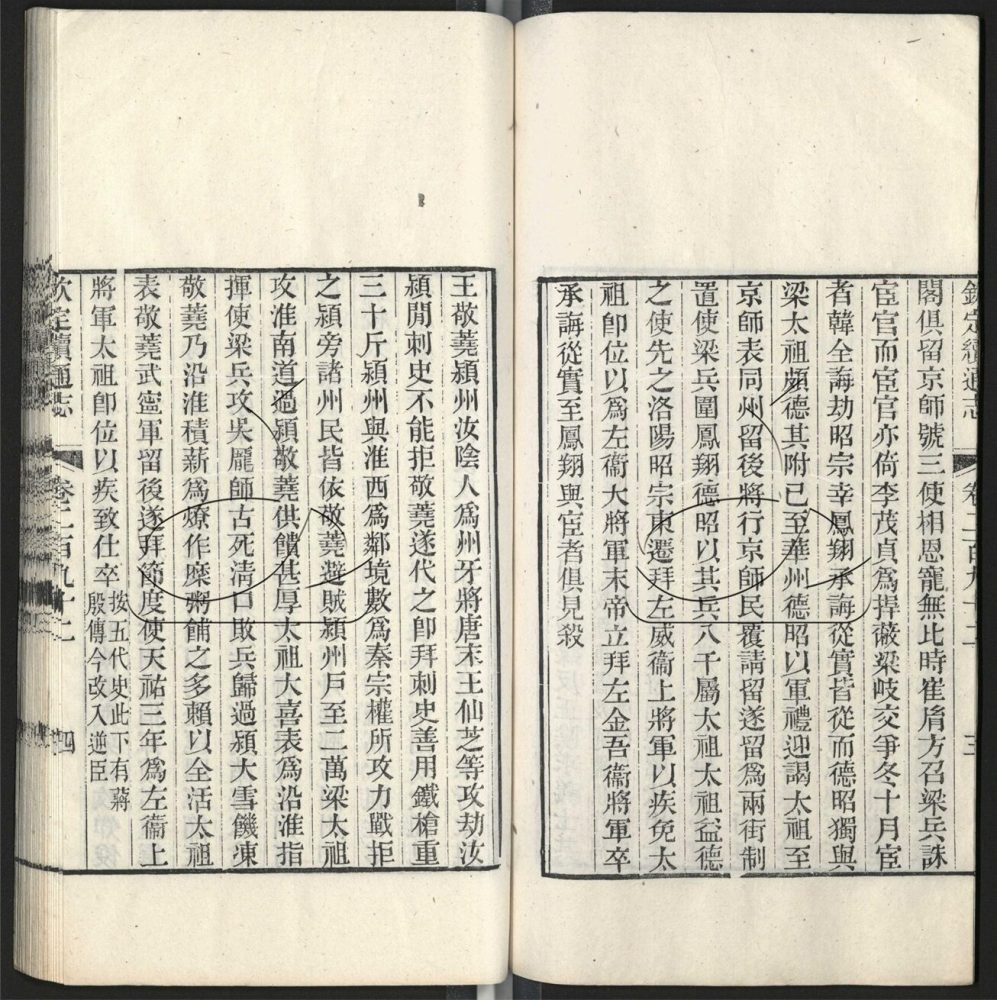 欽定續通志 卷二百九十二 三
閣俱留京師號三使相恩寵無比時崔胤方召梁兵誅
宦官而宦官亦倚李茂貞爲捍蔽梁岐交爭冬十月宦
者韓全誨劫昭宗幸鳳翔承誨從實皆從而德昭獨與
梁太祖頗德其附已至華州德昭以軍禮迎謁太祖至
京師表同州留後將行京師民覆請留遂留爲兩街制
置使梁兵圍鳳翔德昭以其兵八千屬太祖太祖益德
之使先之洛陽昭宗東遷拜左威衞上將軍以疾免太
祖卽位以爲左衞大將軍末帝立拜左金吾衞將軍卒
承誨從實至鳳翔與宦者俱見殺
王敬蕘潁州汝陰人爲州牙將唐末王仙芝等攻劫汝
潁閒刺史不能拒敬蕘遂代之卽拜刺史善用鐵槍重
三十斤潁州與淮西爲鄰境數爲秦宗權所攻力戰拒
之潁旁諸州民皆依敬蕘避賊潁州戶至二萬梁太祖
攻淮南道過潁敬蕘供饋甚厚太祖大喜表爲沿淮指
揮使梁兵攻吳龎師古死清口敗兵歸過潁大雪饑凍
敬蕘乃沿淮積薪爲燎作糜粥餔之多賴以全活太祖
表敬蕘武寧軍留後遂拜節度使天祐三年爲左衞上
將軍太祖卽位以疾致仕卒按五代史此下有蔣殷傳今改入逆臣
欽定續通志 卷二百九十二 四